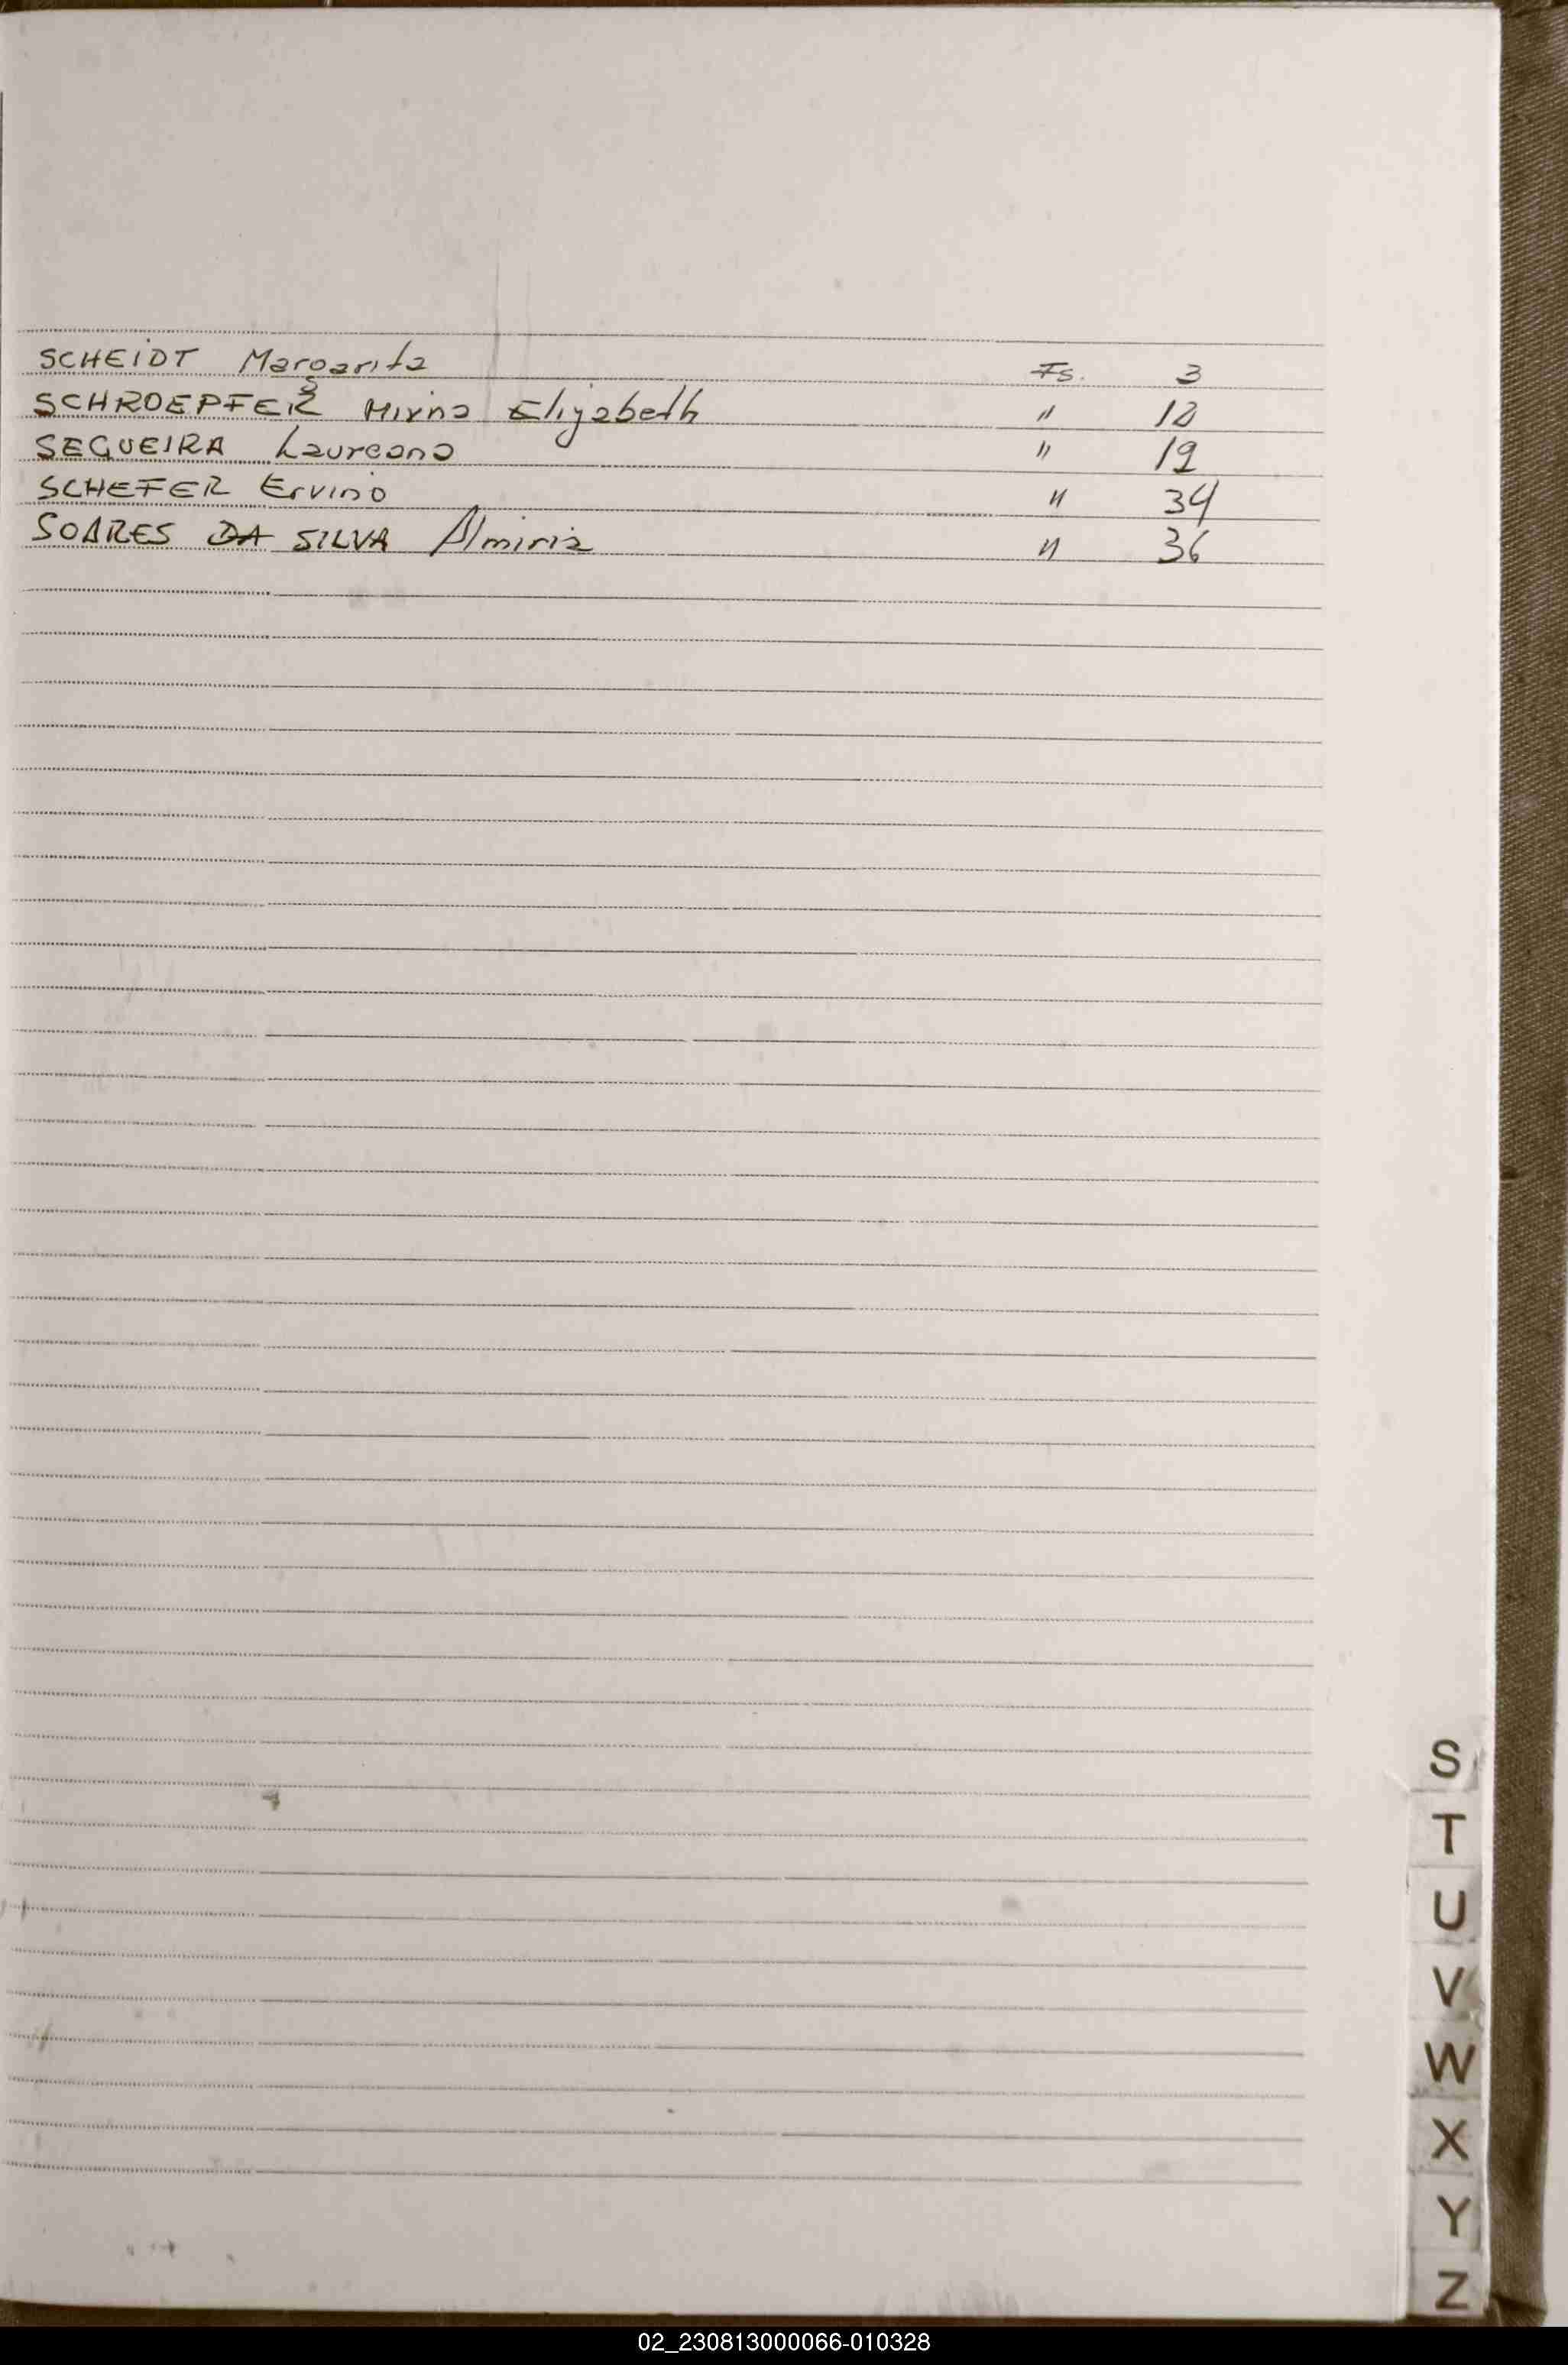 SCHEIDT Margarita Fs. 3
SCHROEPFER Mirna Elizabeth " 18
SEGUEIRA Laureano " 19
SCHEFER Ervino " 34
SOARES DA SILVA Almiria " 36
S
T
U
V
W
X
Y
Z
02_230813000066-010328